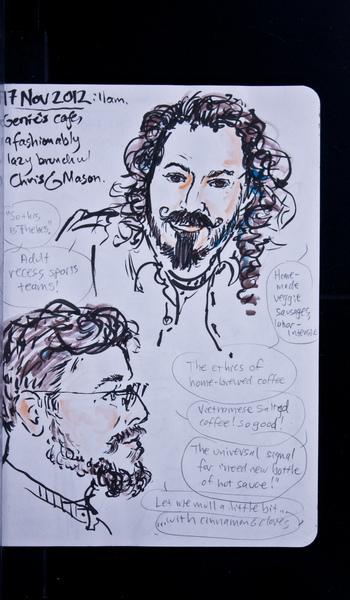 17 Nov 2012 :: 11am.
Genie's cafe,
a fashionably
lazy brunch w/
Chris G Mason.
"So this
is Phebes."
Adult
recess sports
teams!
Home-
made
veggie
sausages,
labor-
intensive
The ethics of
home-brewed coffee
Vietnamese salted
coffee! So good!
The universal signal
for "need new bottle
of hot sauce!"
Let me mull a little bit...
...with cinnamon & cloves